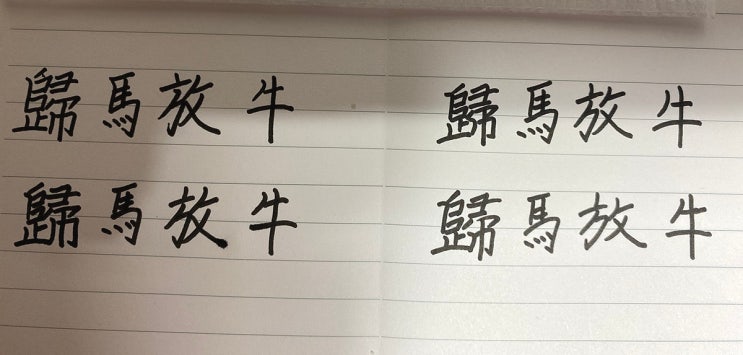 歸馬放牛 歸馬放牛
歸馬放牛 歸馬放牛